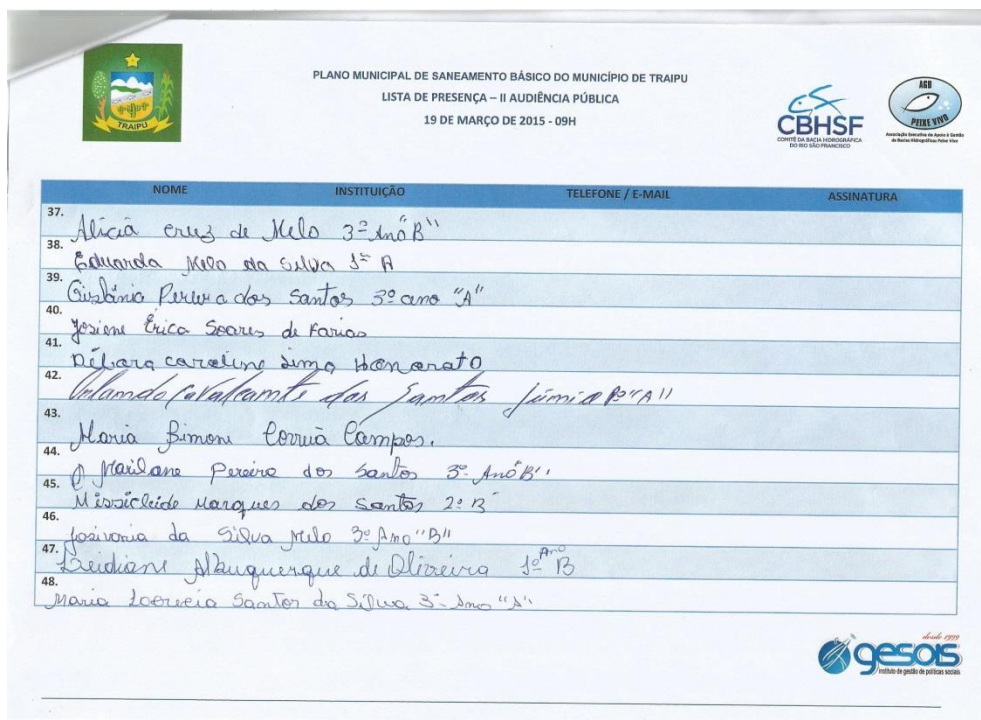 PLANO MUNICIPAL DE SANEAMENTO BÁSICO DO MUNICÍPIO DE TRAIPU
LISTA DE PRESENÇA – II AUDIÊNCIA PÚBLICA
19 DE MARÇO DE 2015 - 09H
TRAIPU
CBHSF
COMITÊ DA BACIA HIDROGRÁFICA
DO RIO SÃO FRANCISCO
AGB
PEIXE VIVO
Associação Executiva de Apoio à Gestão
de Bacias Hidrográficas Peixe Vivo
NOME INSTITUIÇÃO TELEFONE / E-MAIL ASSINATURA
37. Alícia cruz de Melo 3º Ano "B"
38. Eduarda Melo da Silva 1º A
39. Pereira dos Santos 3º ano "A"
40. Josiene Érica Soares de Farias
41. Débara caroline Lima Honorato
42. Cavalcante dos Santos Júnior "A"
43. Maria Simone Correia Campos.
44. Marilane Pereira dos Santos 3º Ano "B"
45. Missicleide Marques dos Santos 2º B
46. Josivania da Silva Melo 3º Ano "B"
47. Leidiane Albuquerque de Oliveira 1º Ano B
48. Maria Santos da Silva 3º Ano "A"
desde 1999
gesois
instituto de gestão de políticas sociais